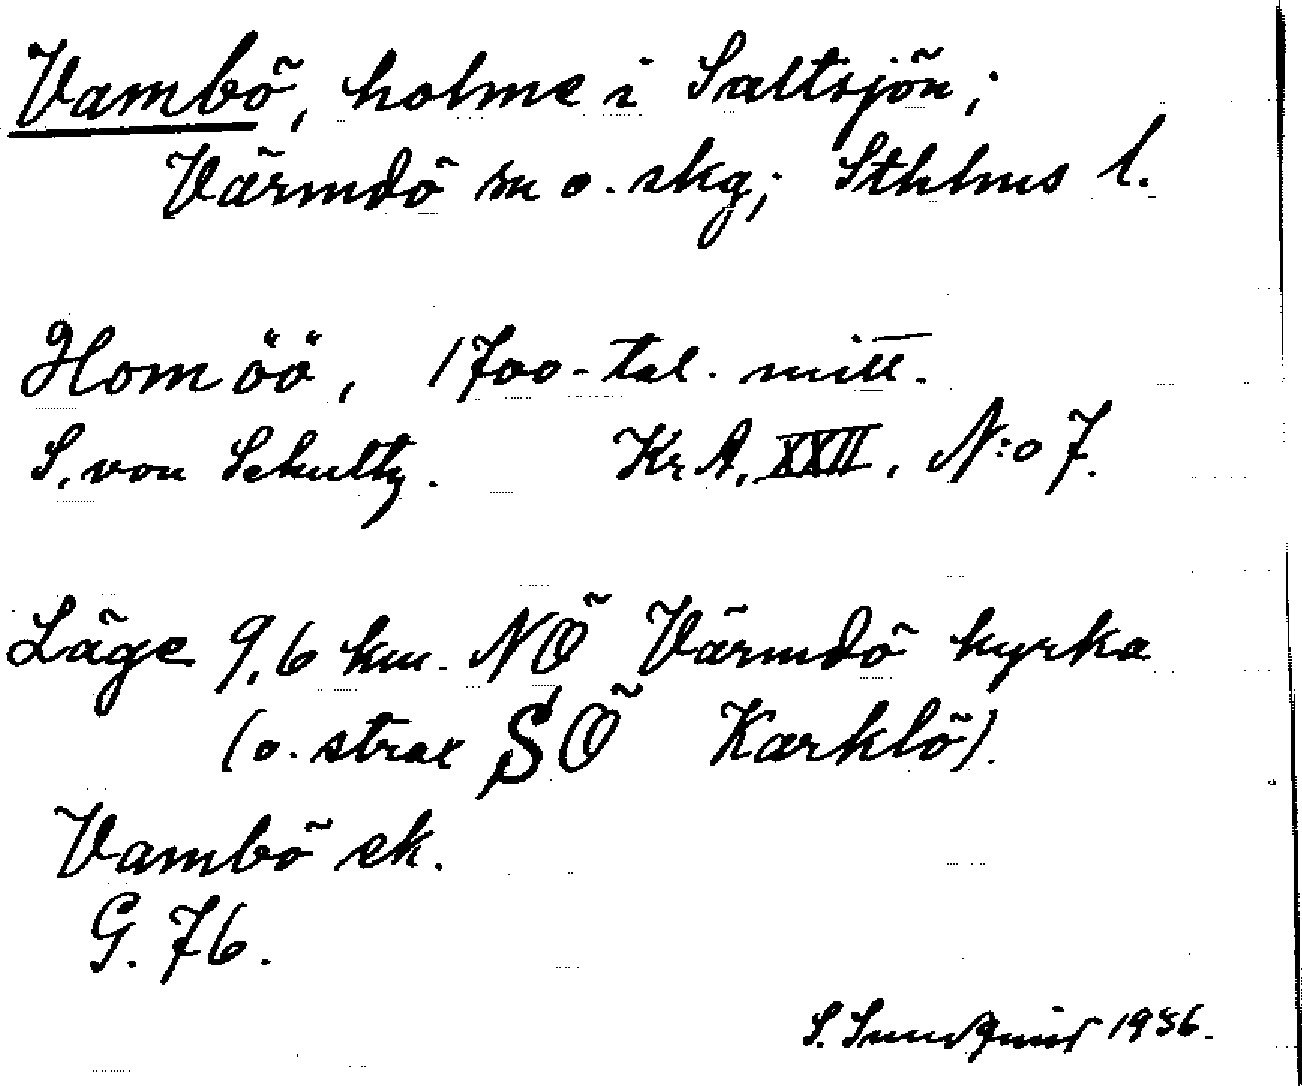 Vambö, holme i Saltsjön;
Värmdö sn o. skg; Sthlms l.
Homöö, 1700-tal. mitt.
S. von Schultz. Kr A. XXII, N:o 7.
Läge 9,6 km. NÖ Värmdö kyrka
(o. strax SÖ Karklö).
Vambö ek.
G. 76.
S. Sundquist 1936.